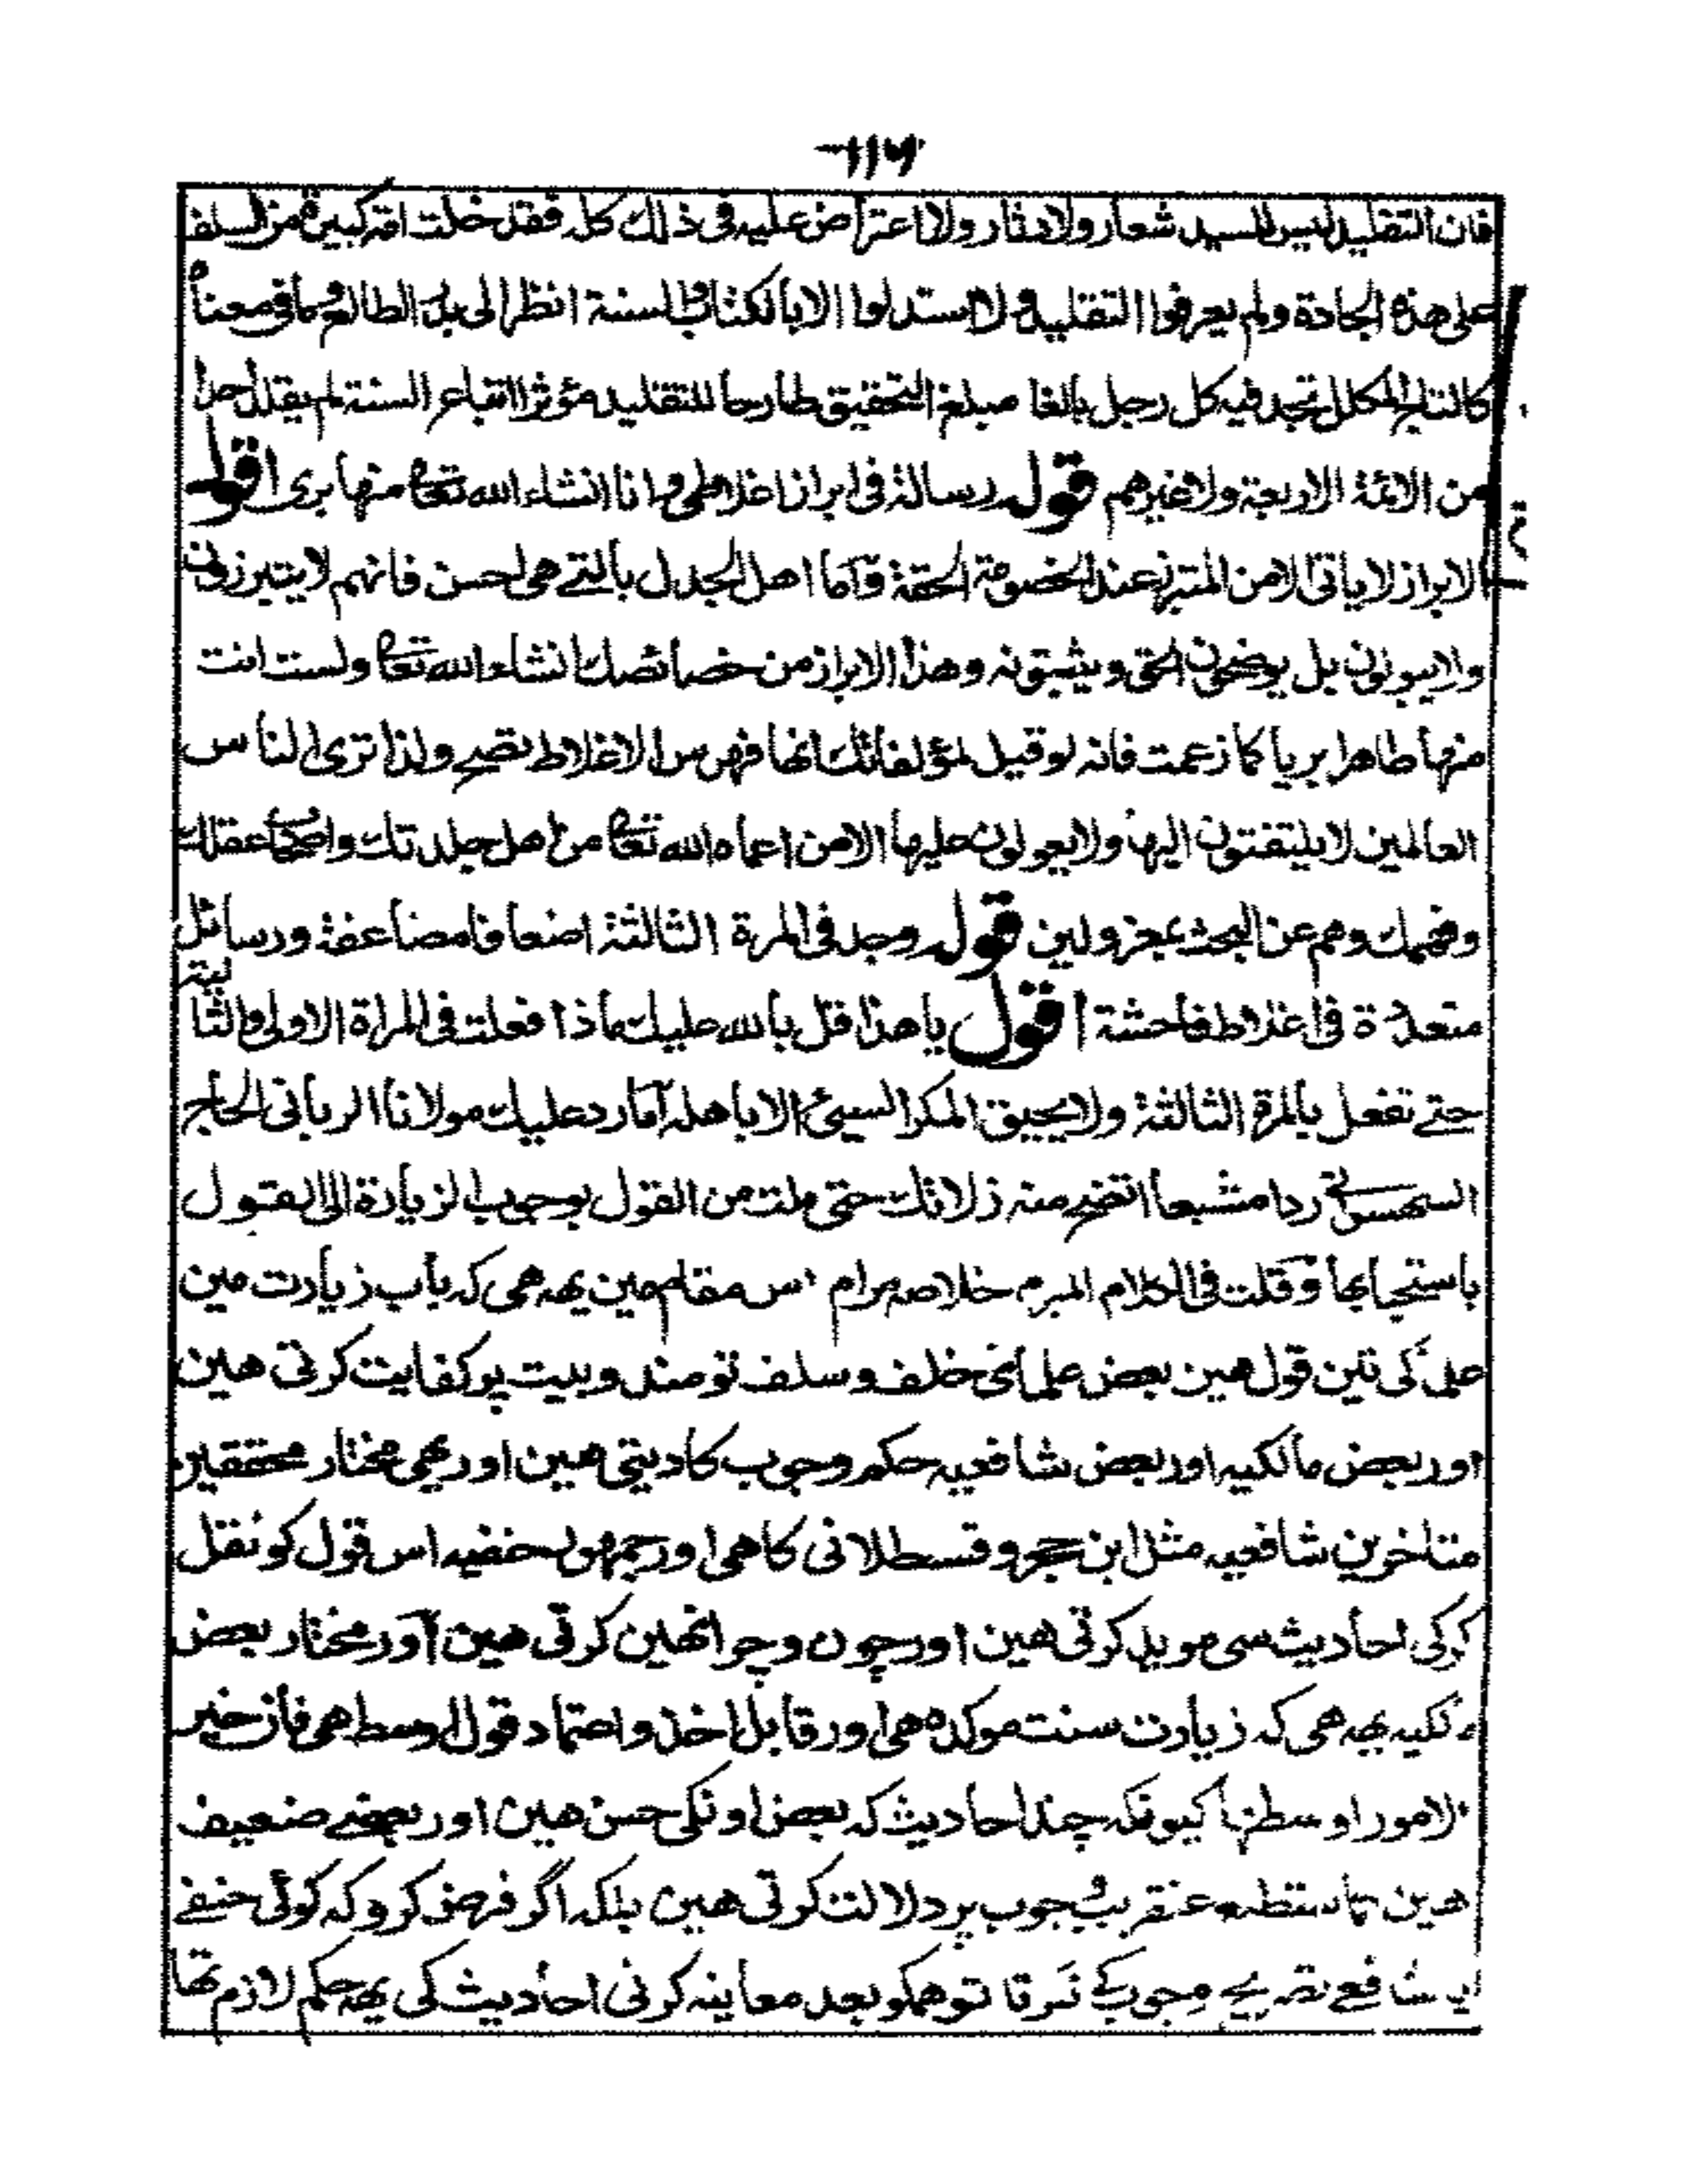 ١١٦
فان التقليد ليس للسيد شعار ولا دثار ولا اعتراض عليه فى ذلك كله فقد خلت امة كبيرة من السلف
على هذه الجادة ولم يعرفوا التقليد ولا استدلوا الا بالكتاب والسنة انظر الى بدر الطالع وما فى معناه
كالتاج المكلل تجد فيه كل رجل بالغا مبلغ التحقيق طارحا للتقليد مؤثرا اتباع السنة لم يقلد احدا
من الائمة الاربعة ولا غيرهم قوله رسالة فى ابراز اغلاطى وانا انشاء الله تعالى منها برى اقول
الابراز لا ياتى الا من المتبرز عند الخصومة الحقة واما اهل الجدل بالتے هى احسن فانهم لا يتبرزون
ولا يبولون بل يوضحون الحق ويثبتونه وهذا الابراز من خصائصك انشاء الله تعالى ولست انت
منها طاهرا بريا كما زعمت فانه لو قيل لمؤلفاتك انها فهرس الاغلاط يصح ولذا ترى الناس
العالمين لا يلتفتون اليها ولا يعولون عليها الا من اعماه الله تعالى من اهل جلدتك واصحاب عقلك
وفهمك وهم عن البحث بمعزولين قوله وجد فى المرة الثالثة اضعافا مضاعفة ورسائل
متعددة فى اغلاط فاحشة اقول يا هذا قل بالله عليك ماذا فعلت فى المراة الاولى والثانية
حتے تفعل بالمرة الثالثة ولا يحيق المكر السيئ الا باهله اما رد عليك مولانا الربانى الحاج
السهسوانى ردا مشبعا اتضح منه زلاتك حتى ملت من القول بوجوب الزيارة الى القول
باستحبابها وقلت فى الكلام المبرم خلاصه مرام اس مقام مين يهه هى كه باب زيارت مين
علما كى تين قول هين بعض علمائى خلف و سلف تو مندوبيت پر كفايت كرتى هين
اور بعض مالكيه اور بعض شافعيه حكم وجوب كا ديتى هين اور يهى مختار محققين
متاخرين شافعيه مثل ابن حجر و قسطلانى كا هى اور جمهور حنفيه اس قول كو نقل
كركى احاديث سى مويد كرتى هين اور چون و چرا نهين كرتى هين اور مختار بعض
مالكيه يهه هى كه زيارت سنت موكده هى اور قابل اخذ و اعتماد قول اوسط هى فان خير
الامور اوسطها كيونكه چند احاديث كه بعض اونكى حسن هين اور بعضے ضعيف
هين كما ستطلع عنقريب وجوب پر دلالت كرتى هين بلكه اگر فرض كرو كه كوئى حنفے
يا شافعے تصريح وجوب كے نه كرتا تو همكو بعد معاينه كرنى احاديث كى يهه حكم لازم تها